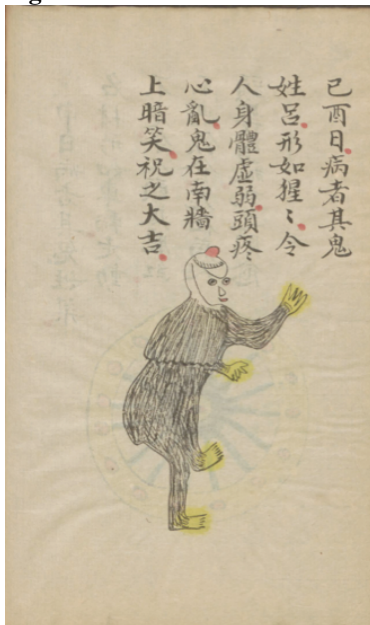 已酉日病者其鬼
姓呂形如猩〻令
人身體虛弱頭疼
心亂鬼在南牆
上暗笑祝之大吉